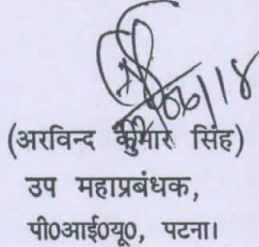 06/18
(अरविन्द कुमार सिंह)
उप महाप्रबंधक,
पी0आई0यू0, पटना।